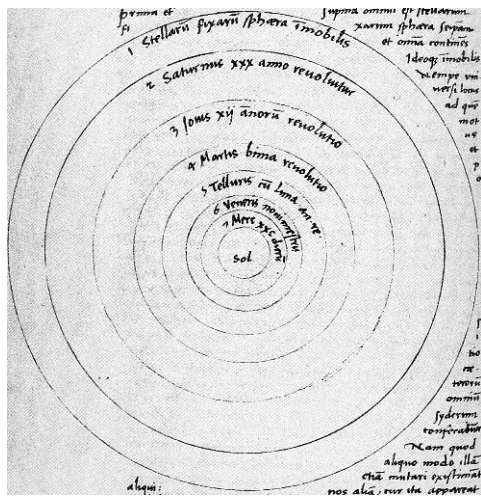 prima et
si
supima omnium est stellarum
xarum sphæra seipsam
et omnia continens
Ideoq; īmobilis
Nempe uni
uersi locus
ad quē
mot
us
et
p
o
1 Stellarū fixarū sphæra īmobilis
2 Saturnus xxx anno reuoluitur
3 Iouis xij ānorū reuolutio
4 Martis bima reuolutio
5 Telluris cū luna an. re
6 Veneris nonimestris
7 Merc xxc dierū
Sol
tio
ce
terorū
omniū
syderum
conferatur
Nam quod
aliquo modo illā
etiā mutari existimāt
aliqui:
nos aliā, cur ita appareat